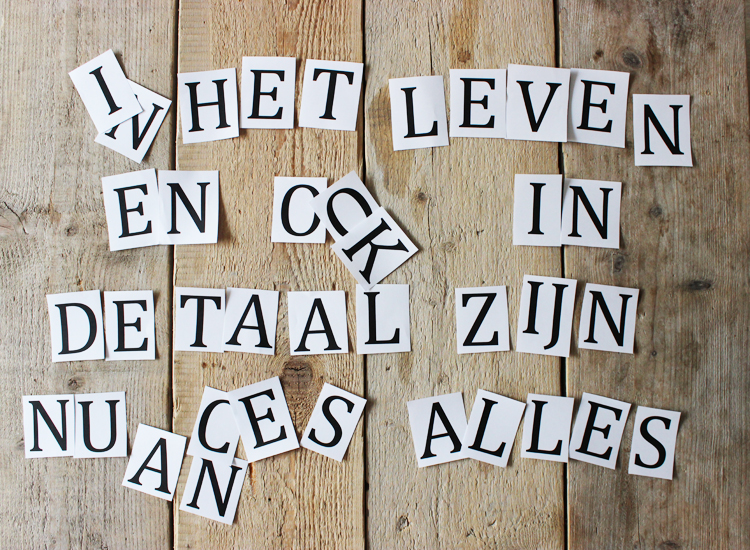 IN HET LEVEN
EN OOK IN
DE TAAL ZIJN
NUANCES ALLES